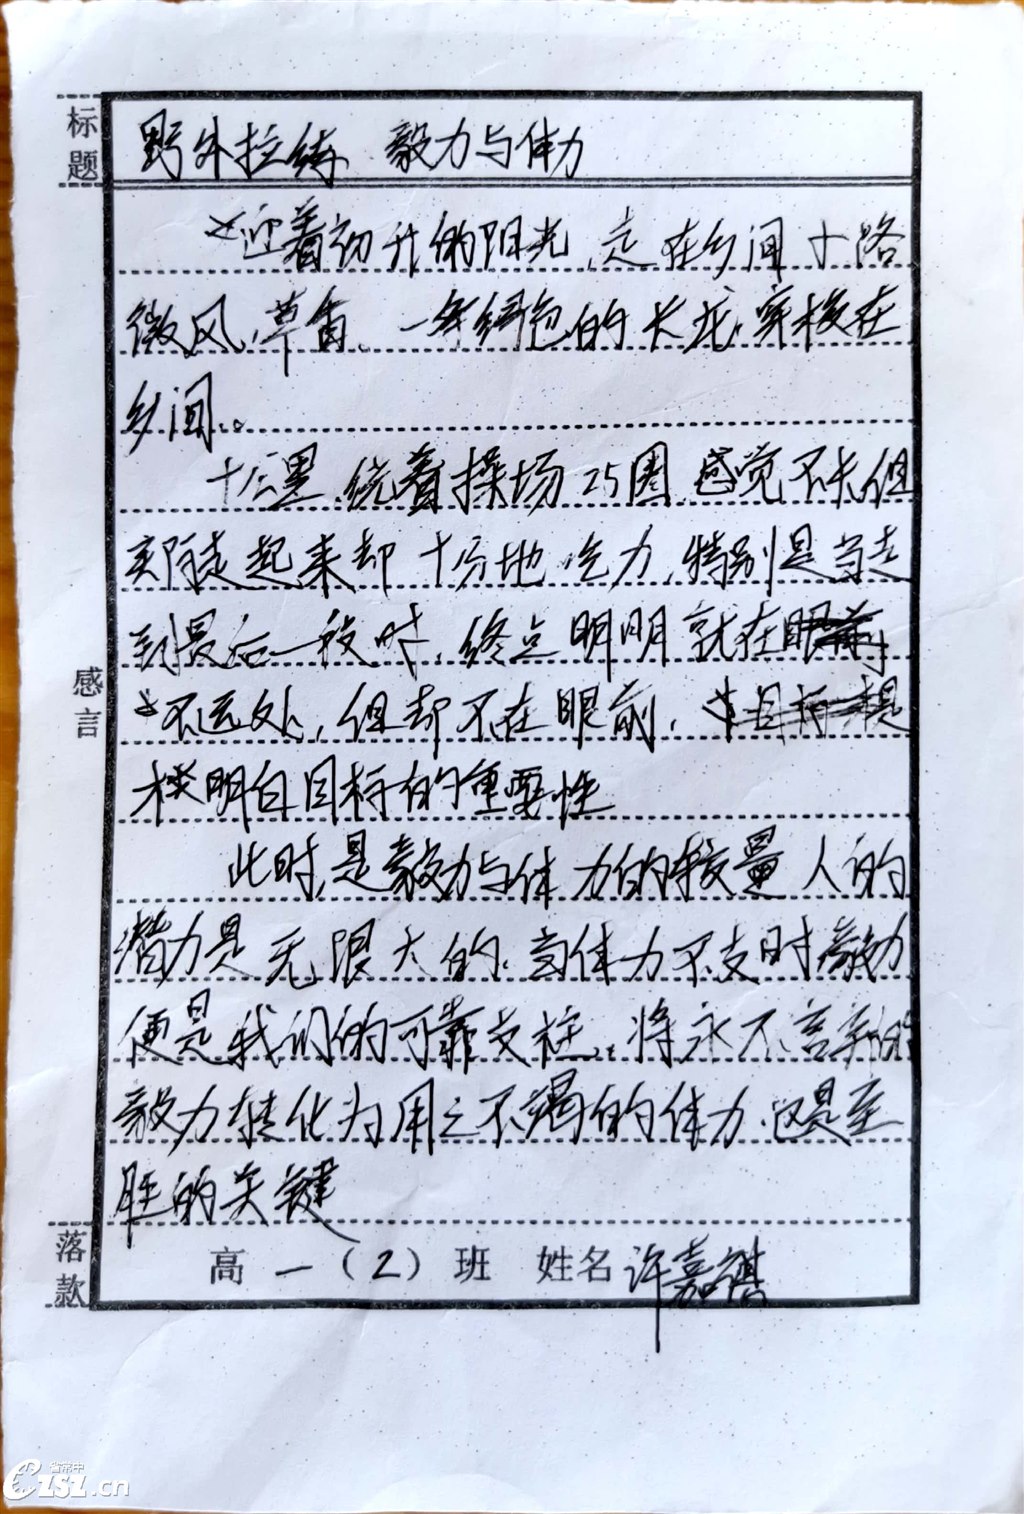 标题
野外拉练 毅力与体力
迎着初升的阳光,走在乡间小路
微风,草香、一条绿色的长龙,穿梭在
乡间。
十公里,绕着操场25圈,感觉不长但
实际走起来却十分地吃力,特别是当走
到最后一段时,终点明明就在
感言
不远处,但却不在眼前,
明白目标的重要性
此时,是毅力与体力的较量 人的
潜力是无限大的,当体力不支时毅力
便是我们的可靠支柱,将永不言弃的
毅力转化为用之不竭的体力,这是至
胜的关键
落款
高一(2)班 姓名许嘉祺
省常中
CZSZ.cn